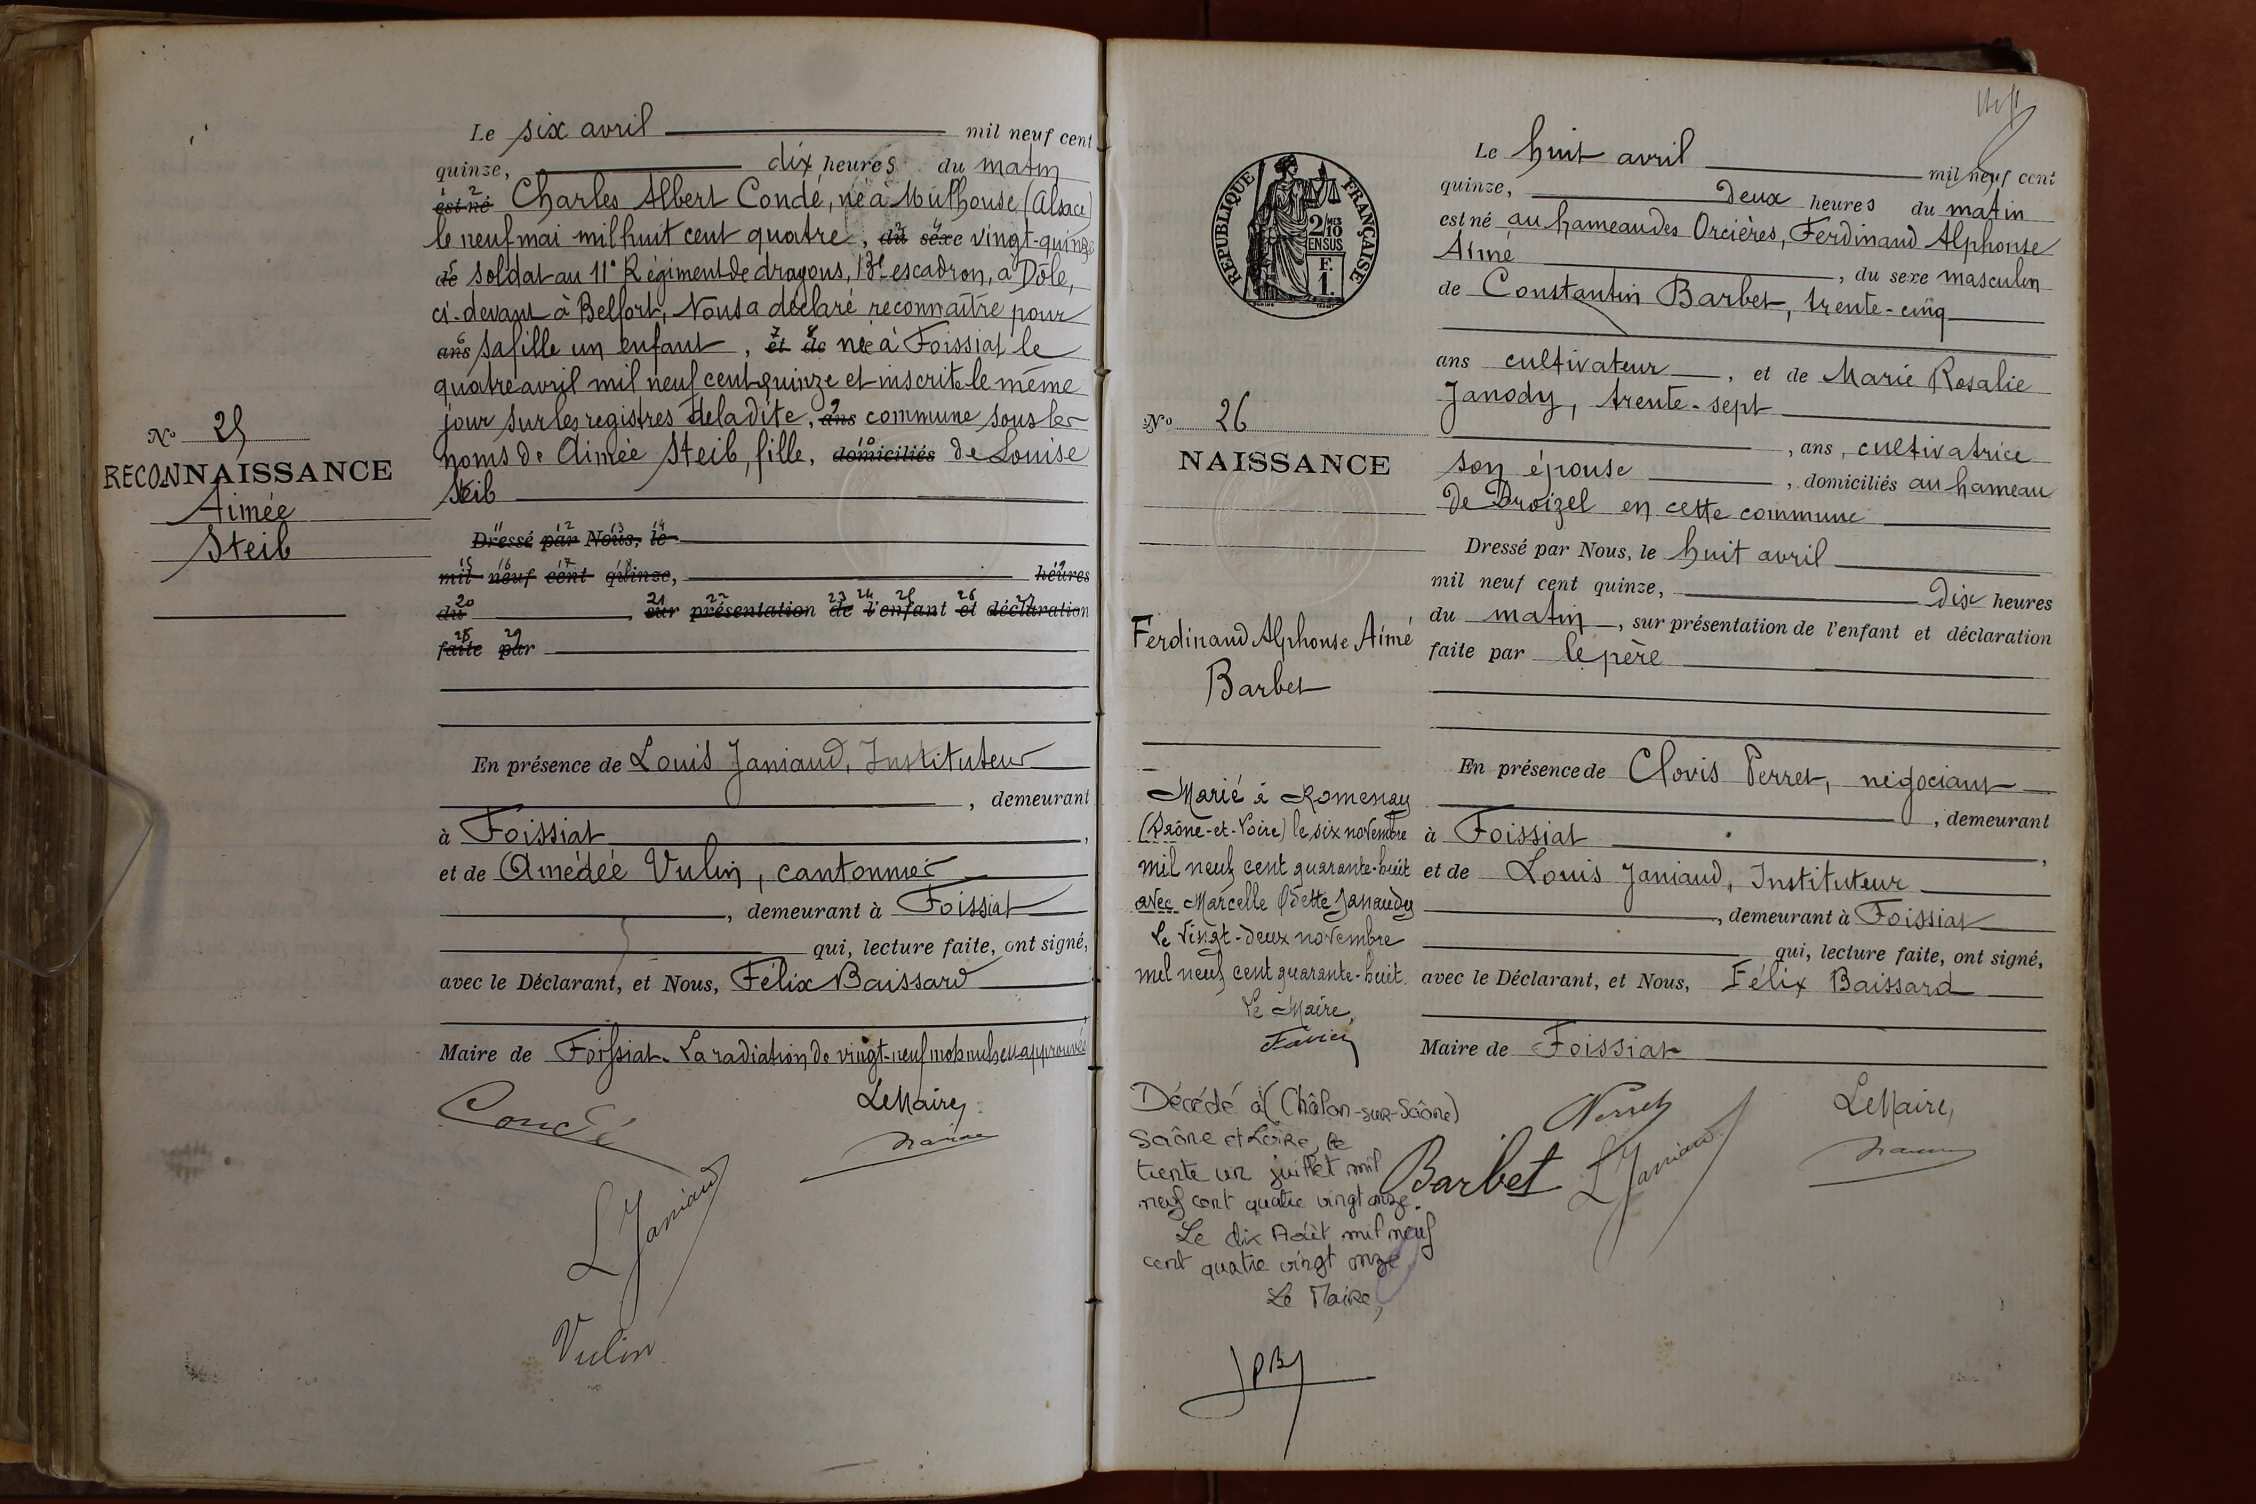 Le six avril mil neuf cent
quinze, dix heures du matin
est né Charles Albert Condé, né à Mulhouse, (Alsace)
le neuf mai mil huit cent quatre, du sexe vingt-quinze
de soldat au 11e Régiment de dragons, 13e escadron, à Dôle,
ci-devant à Belfort, Nous a déclaré reconnaître pour
ans sa fille un enfant, et de née à Foissiat le
quatre avril mil neuf cent quinze et inscrite le même
jour sur les registres de la dite, ans commune sous les
noms de Aimée Steib, fille, domiciliés de Louise
Steib
Dressé par Nous, le
mil neuf cent quinze, heures
du , sur présentation de l'enfant et déclaration
faite par
En présence de Louis Janiaud, Instituteur
, demeurant
à Foissiat,
et de Amédée Vulin, cantonnier
, demeurant à Foissiat
qui, lecture faite, ont signé,
avec le Déclarant, et Nous, Félix Baissard
Maire de Foissiat. La radiation de vingt-neuf mots nuls est approuvée
Condé
Le Maire,
L Janiaud
Vulin
No 25
RECONNAISSANCE
Aimée
Steib
RÉPUBLIQUE FRANÇAISE
2/10
EN SUS
F.
1.
Le huit avril mil neuf cent
quinze, deux heures du matin
est né au hameau des Orcières, Ferdinand Alphonse
Aimé , du sexe masculin
de Constantin Barbet, trente-cinq
ans cultivateur , et de Marie Rosalie
Janody, trente-sept
, ans, cultivatrice
son épouse , domiciliés au hameau
de Broizel en cette commune
Dressé par Nous, le huit avril
mil neuf cent quinze, dix heures
du matin , sur présentation de l'enfant et déclaration
faite par le père
En présence de Clovis Perret, négociant
, demeurant
à Foissiat ,
et de Louis Janiaud, Instituteur
, demeurant à Foissiat
qui, lecture faite, ont signé,
avec le Déclarant, et Nous, Félix Baissard
Maire de Foissiat
Perret
Le Maire,
Barbet
L Janiaud
No 26
NAISSANCE
Ferdinand Alphonse Aimé
Barbet
Marié à Romenay
(Saône-et-Loire) le six novembre
mil neuf cent quarante-huit
avec Marcelle Odette Janaudy
le vingt-deux novembre
mil neuf cent quarante-huit.
Le Maire,
Décédé à (Châlon-sur-Saône)
Saône et Loire, le
trente un juillet mil
neuf cent quatre vingt onze.
Le dix Août mil neuf
cent quatre vingt onze
Le Maire,